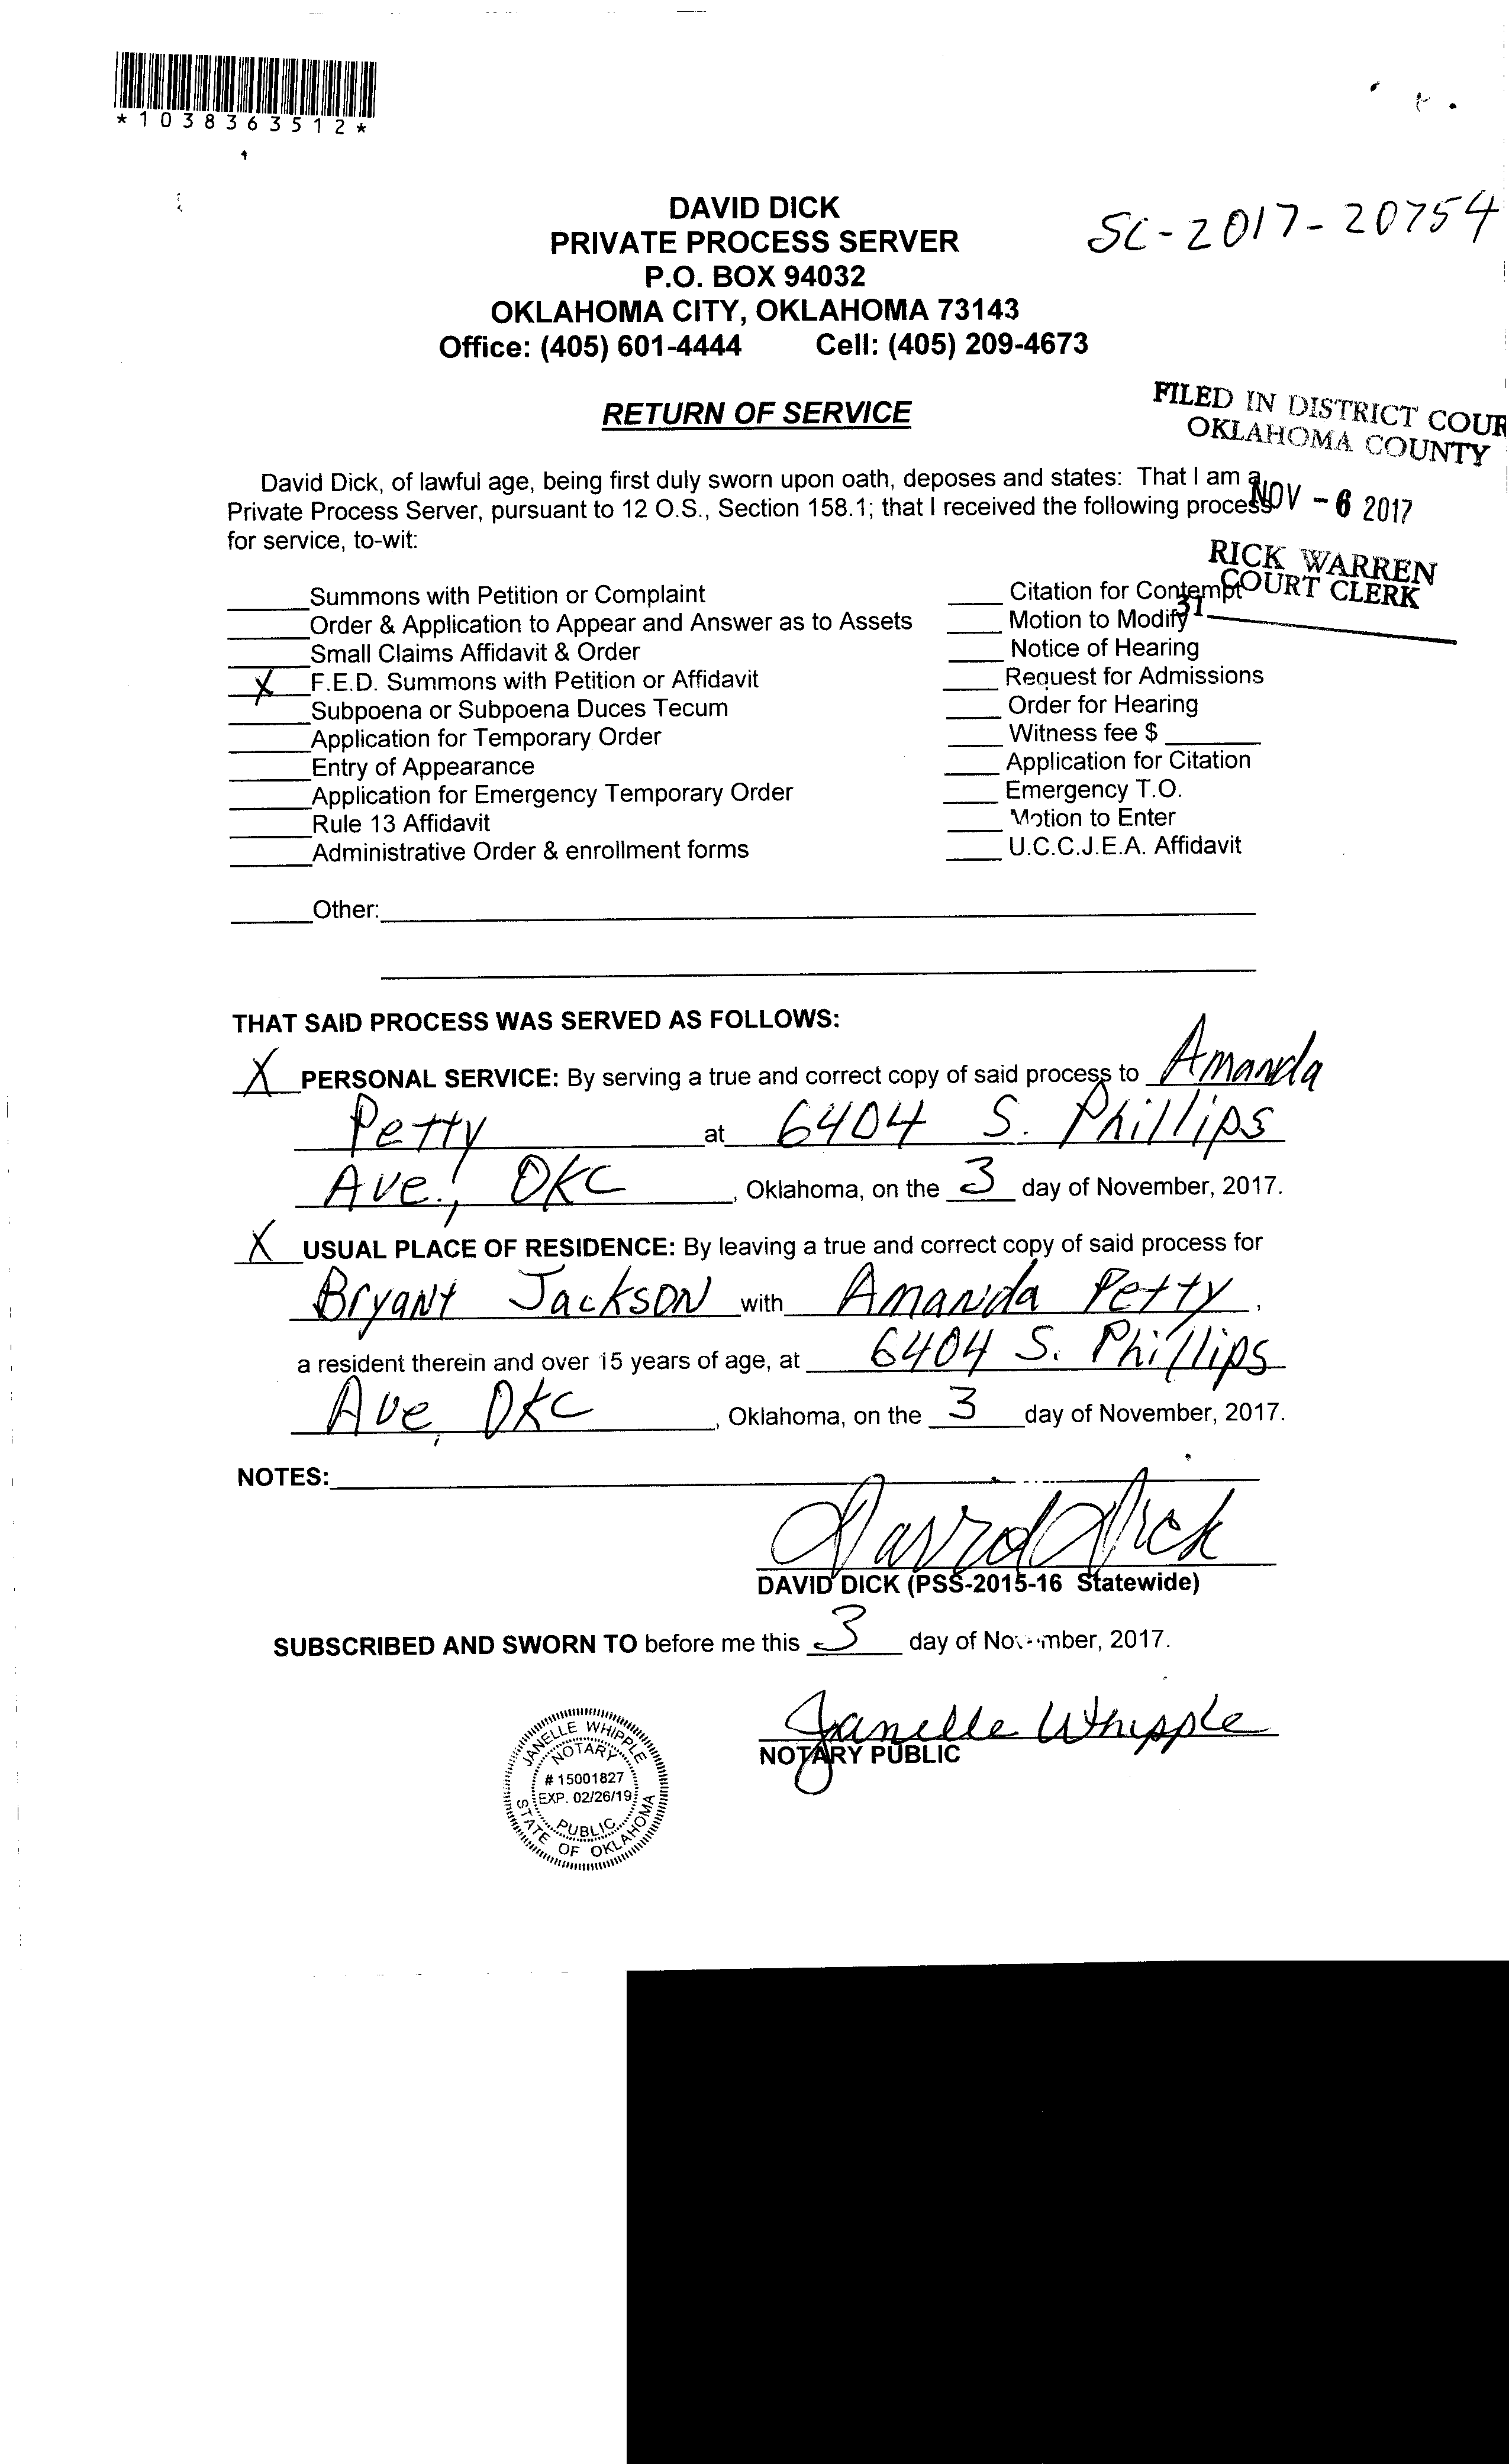 *1038363512*
DAVID DICK
SC-2017-20754
PRIVATE PROCESS SERVER
P.O. BOX 94032
OKLAHOMA CITY, OKLAHOMA 73143
Office: (405) 601-4444 Cell: (405) 209-4673
RETURN OF SERVICE
FILED IN DISTRICT COUR
OKLAHOMA COUNTY
David Dick, of lawful age, being first duly sworn upon oath, deposes and states: That I am a
Private Process Server, pursuant to 12 O.S., Section 158.1; that I received the following process
for service, to-wit:
NOV - 6 2017
RICK WARREN
COURT CLERK
31
Summons with Petition or Complaint
Order & Application to Appear and Answer as to Assets
Small Claims Affidavit & Order
X F.E.D. Summons with Petition or Affidavit
Subpoena or Subpoena Duces Tecum
Application for Temporary Order
Entry of Appearance
Application for Emergency Temporary Order
Rule 13 Affidavit
Administrative Order & enrollment forms
Citation for Contempt
Motion to Modify
Notice of Hearing
Request for Admissions
Order for Hearing
Witness fee $
Application for Citation
Emergency T.O.
Motion to Enter
U.C.C.J.E.A. Affidavit
Other:
THAT SAID PROCESS WAS SERVED AS FOLLOWS:
X PERSONAL SERVICE: By serving a true and correct copy of said process to Amanda
Petty at 6404 S. Phillips
Ave., OKC, Oklahoma, on the 3 day of November, 2017.
X USUAL PLACE OF RESIDENCE: By leaving a true and correct copy of said process for
Bryant Jackson with Amanda Petty,
a resident therein and over 15 years of age, at 6404 S. Phillips
Ave, OKC, Oklahoma, on the 3 day of November, 2017.
NOTES:
David Dick
DAVID DICK (PSS-2015-16 Statewide)
SUBSCRIBED AND SWORN TO before me this 3 day of November, 2017.
Janelle Whipple
NOTARY PUBLIC
JANELLE WHIPPLE
NOTARY
# 15001827
EXP. 02/26/19
PUBLIC
STATE OF OKLAHOMA